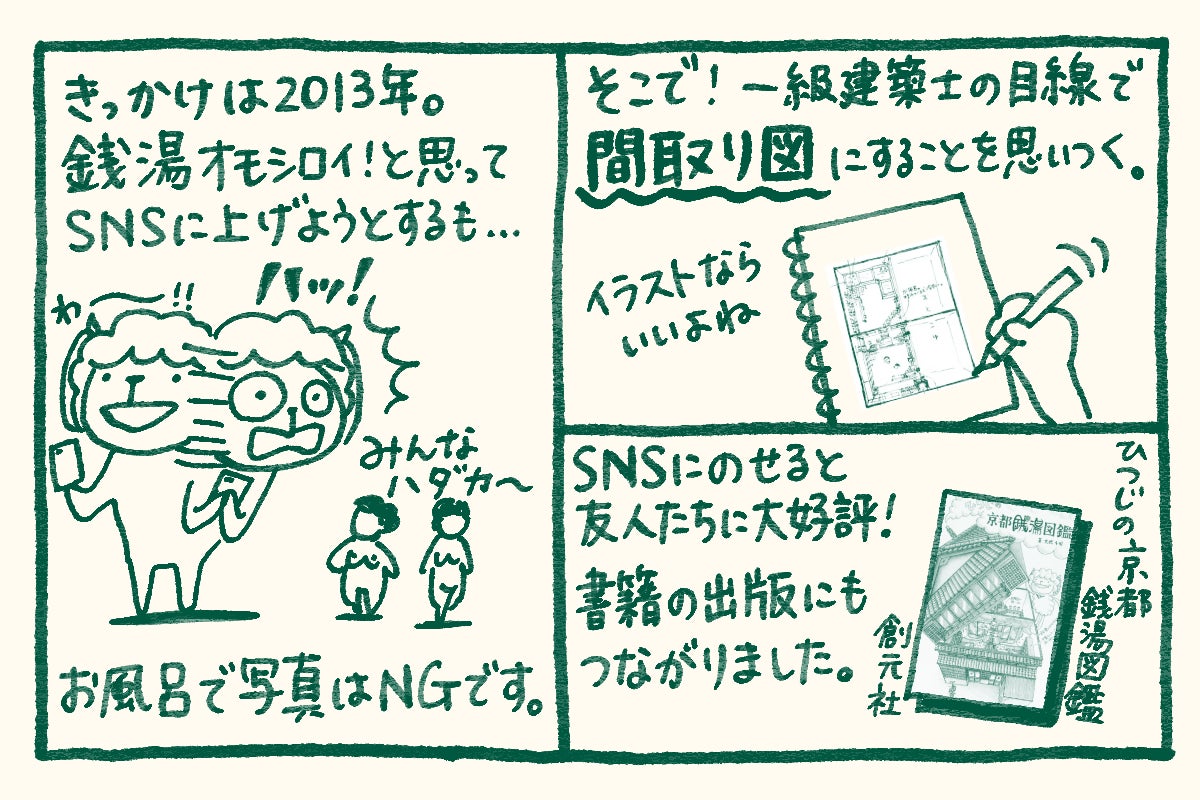 きっかけは2013年。
銭湯オモシロイ!と思って
SNSに上げようとするも…
わ
!!
バッ!
みんな
ハダカ〜
お風呂で写真はNGです。
そこで!一級建築士の目線で
間取り図にすることを思いつく。
イラストなら
いいよね
SNSにのせると
友人たちに大好評!
書籍の出版にも
つながりました。
京都銭湯図鑑
ひつじの京都
銭湯図鑑
創元社